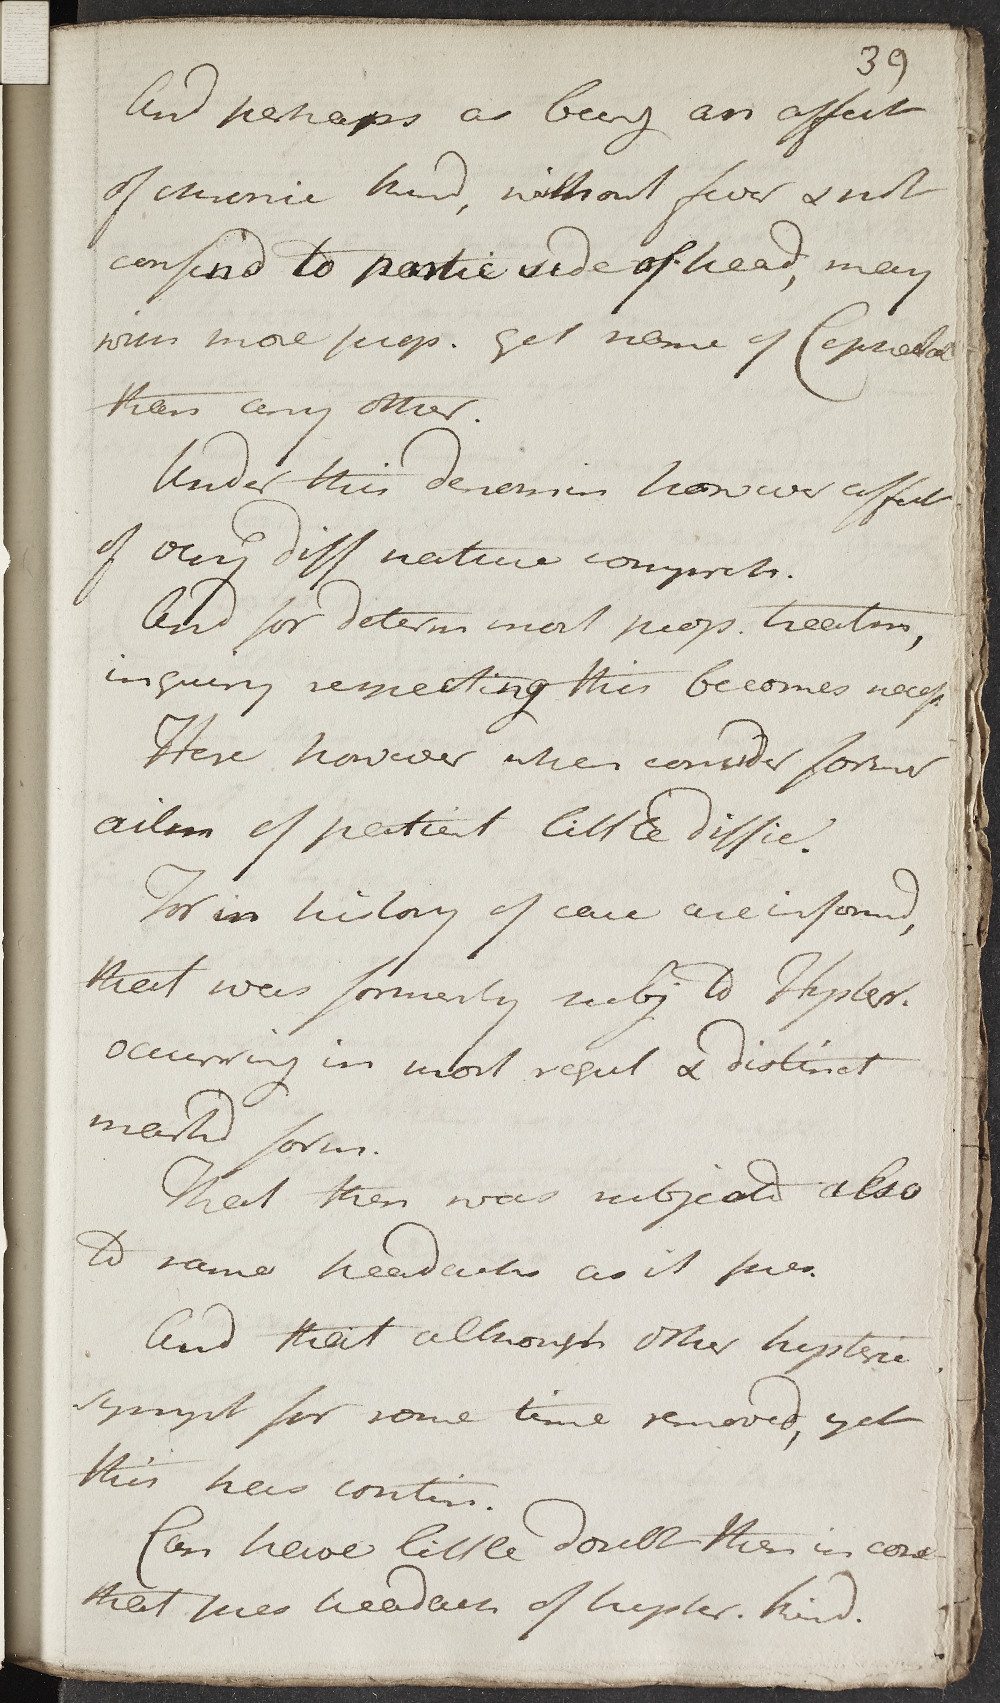 39
And perhaps as being an affect
of chronic kind, without fever & not
confin'd to partic side of head, may
with more prop. get name of Cephalal
than any other.
Under this denomin however affect
of very diff nature compreh.
And for determ most prop. treatm,
inquiry respecting this becomes necess.
Here however when consider former
ailm of patient little diffic.
For in history of case are inform'd,
that was formerly subj to Hyster.
occurring in most regul & distinct
mark'd form.
That then was subjected also
to same headachs as at pres.
And that although other hysteric
sympt for some time removed, yet
this has contin.
Can have little doubt then in concl
that pres headach of hyster. kind.